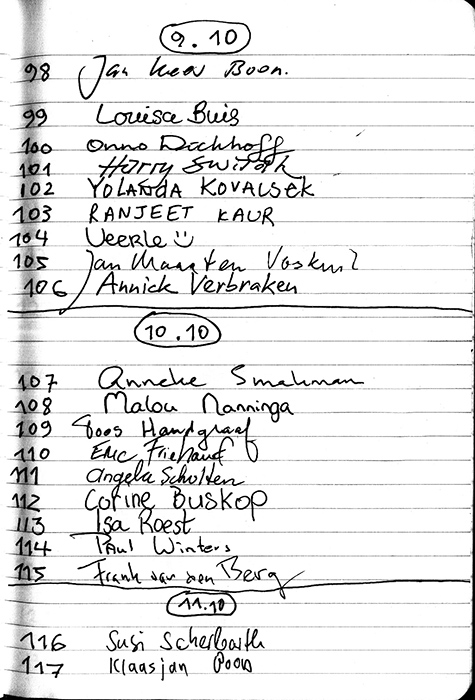 9.10
98 Jan Kees Boon.
99 Louisa Buis
100 Onno Dachhoff
101 Harry
102 YOLANDA KOVALSEK
103 RANJEET KAUR
104 Veerle
105 Jan Maarten Voskuil
106 Annick Verbraken
10.10
107 Anneke
108 Malou Nanninga
109 Toos Handgraaf
110 Eric
111 Angela Scholten
112 Corine Buskop
113 Isa Roest
114 Paul Winters
115 Frank van den Berg
11.10
116 Susi Scherbarth
117 Klaasjan